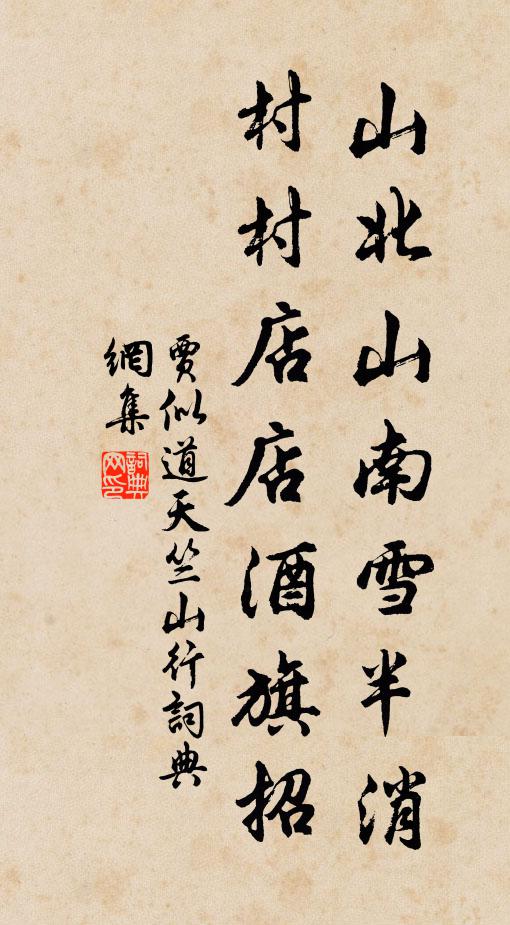 山北山南雪半消
村村店店酒旗招
賈似道天竺山行詞典
網集
詞典网印